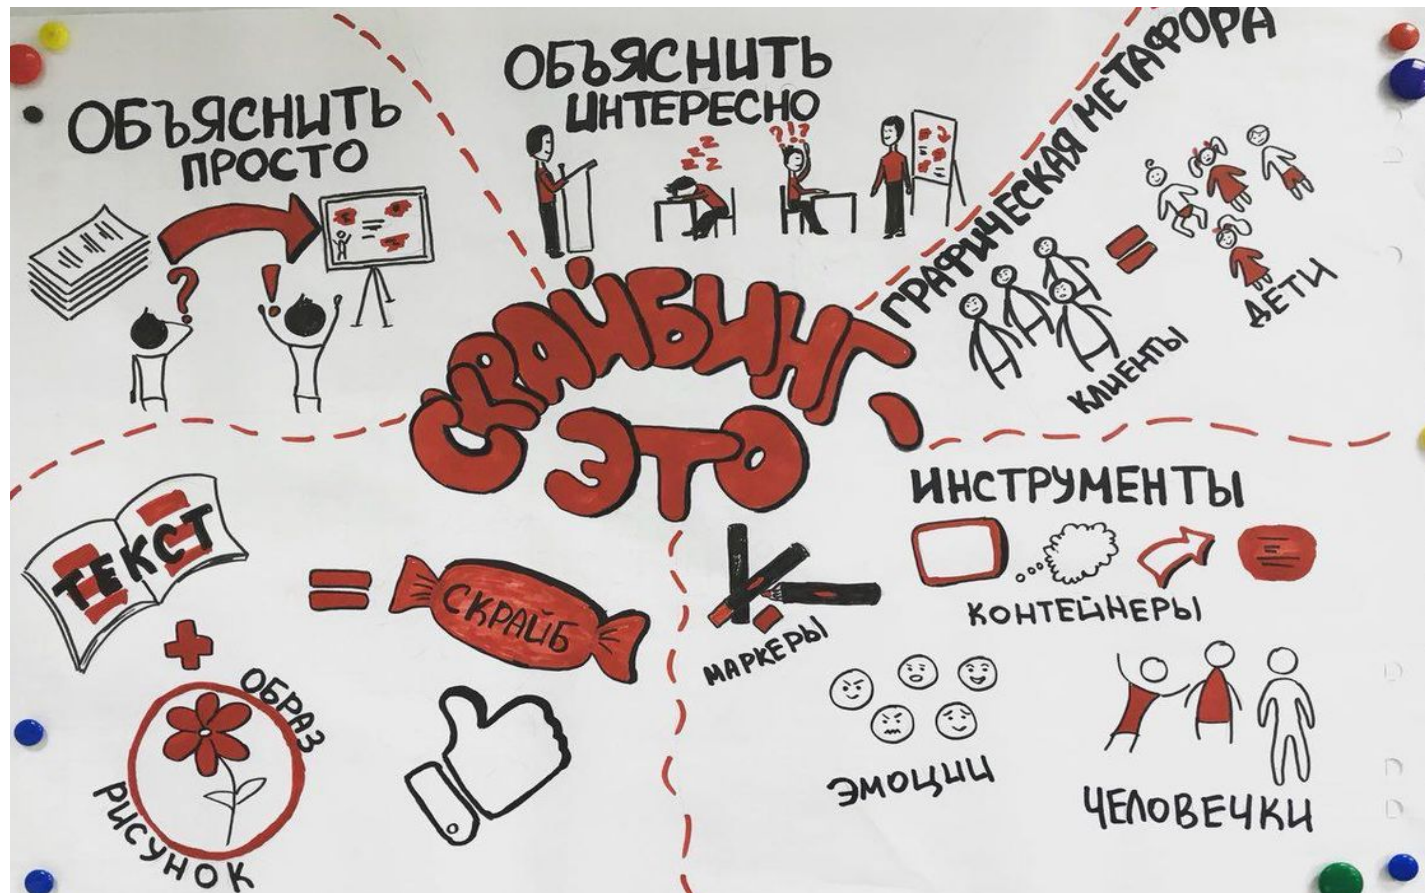 ОБЪЯСНИТЬ
ПРОСТО
?
!
ОБЪЯСНИТЬ
ИНТЕРЕСНО
zzzzz
?!?
ГРАФИЧЕСКАЯ МЕТАФОРА
=
КЛИЕНТЫ
ДЕТИ
СКРАЙБИНГ,
ЭТО
ТЕКСТ
+
ОБРАЗ
РИСУНОК
=
СКРАЙБ
ИНСТРУМЕНТЫ
МАРКЕРЫ
КОНТЕЙНЕРЫ
ЭМОЦИИ
ЧЕЛОВЕЧКИ